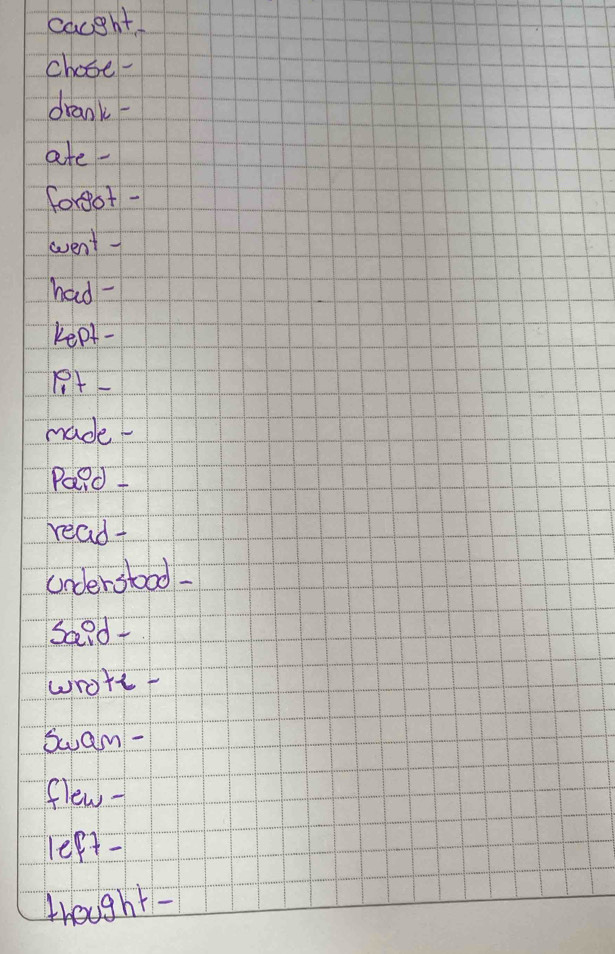 caught -
chose -
drank -
ate -
forgot -
went -
had -
kept -
lit -
made -
Paid -
read -
understood -
said -
wrote -
swam -
flew -
left -
thought -